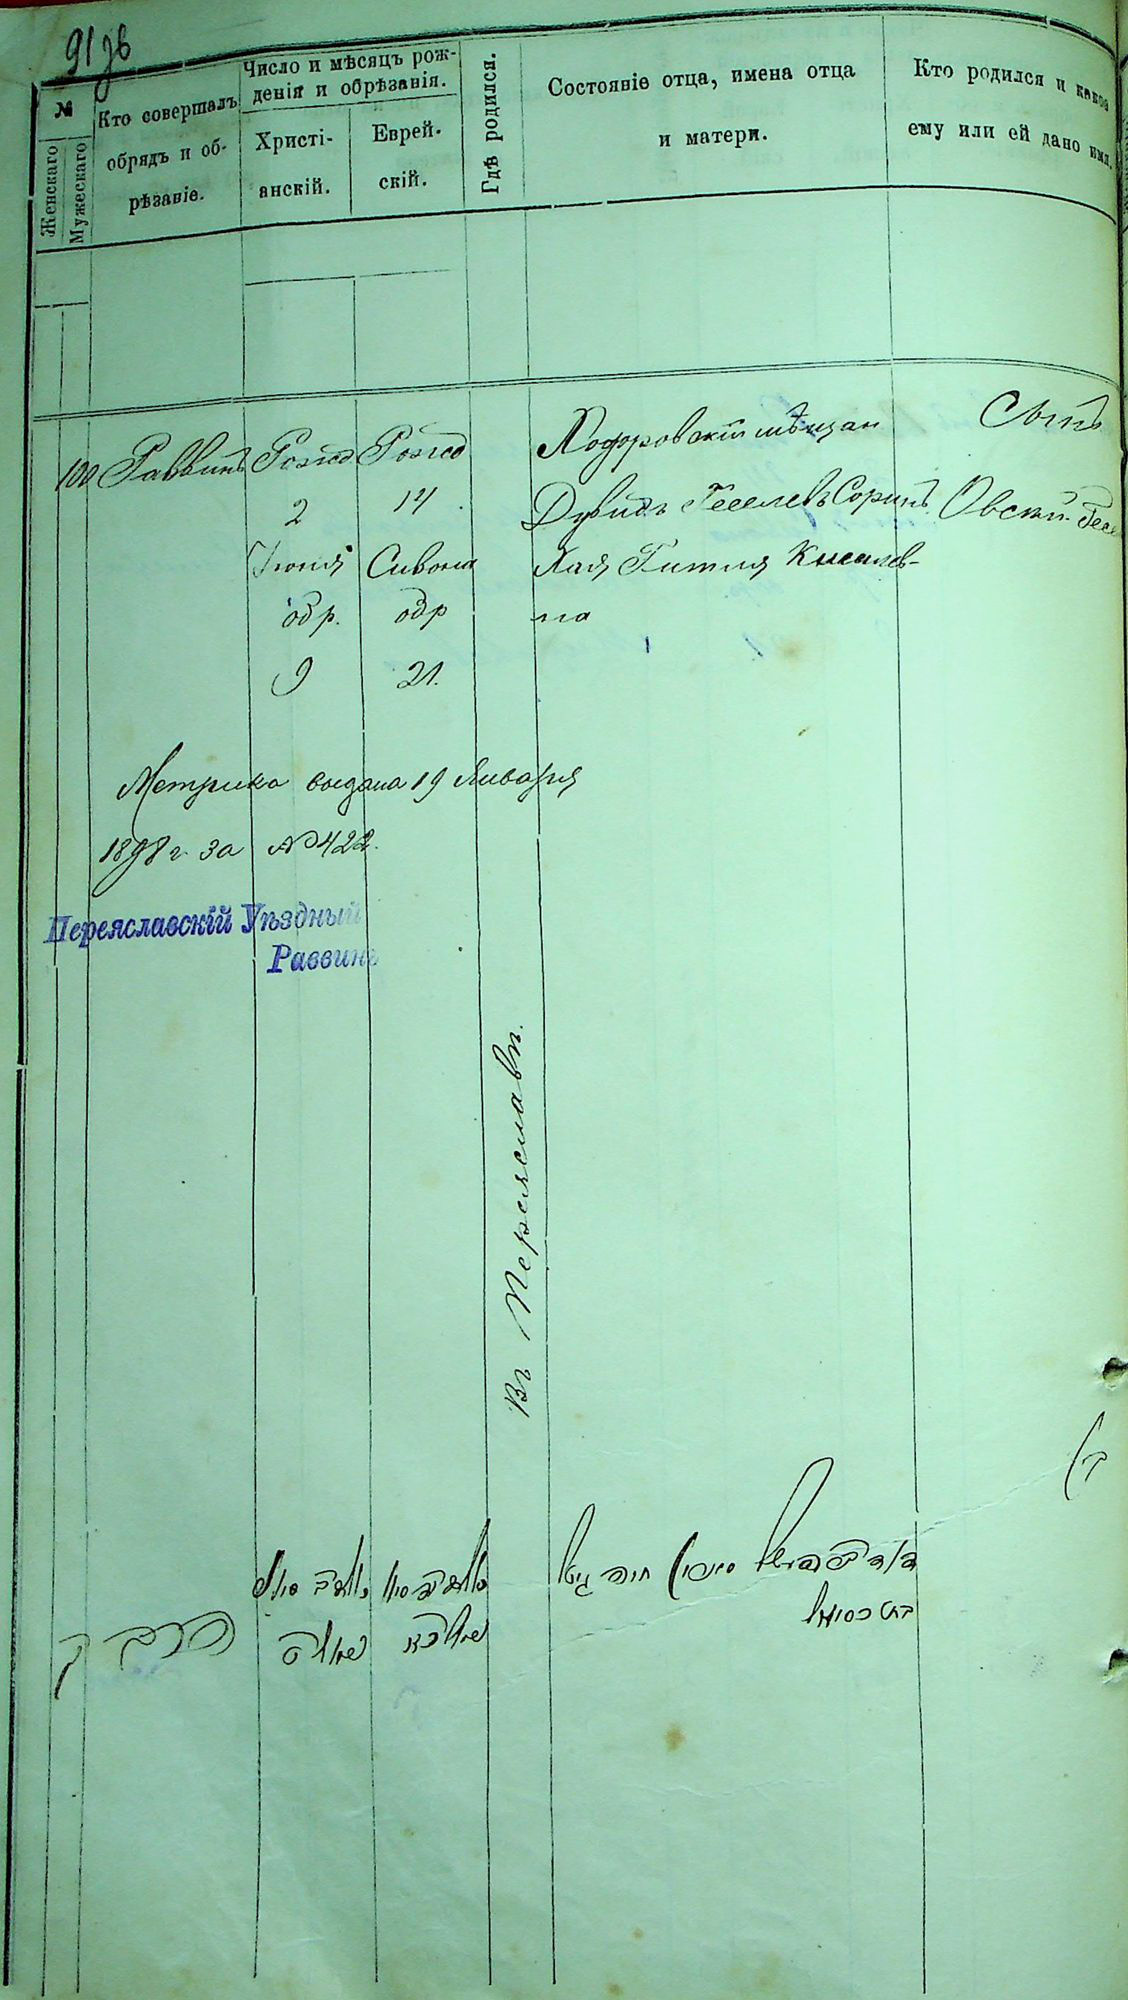 91 зв
№
Женскаго
Мужескаго
Кто совершалъ
обрядъ и об-
рѣзаніе.
Число и мѣсяцъ рож-
денія и обрѣзанія.
Христі-
анскій.
Еврей-
скій.
Гдѣ родился.
Состояніе отца, имена отца
и матери.
Кто родился и какое
ему или ей дано имя.
100
Раввинъ
Рожд
2
Іюня
обр.
9
Рожд
14
Сивона
обр
21.
Въ Переяславѣ.
мѣщан
Дувидъ Геселевъ Соринъ
Хая Гитля Кисилев-
на
Сынъ
Овсѣй
Метрика выдана 19 Января
1898 г за №422.
Переяславскій Уѣздный
Раввинъ
ק
הרב
חיה גיטל